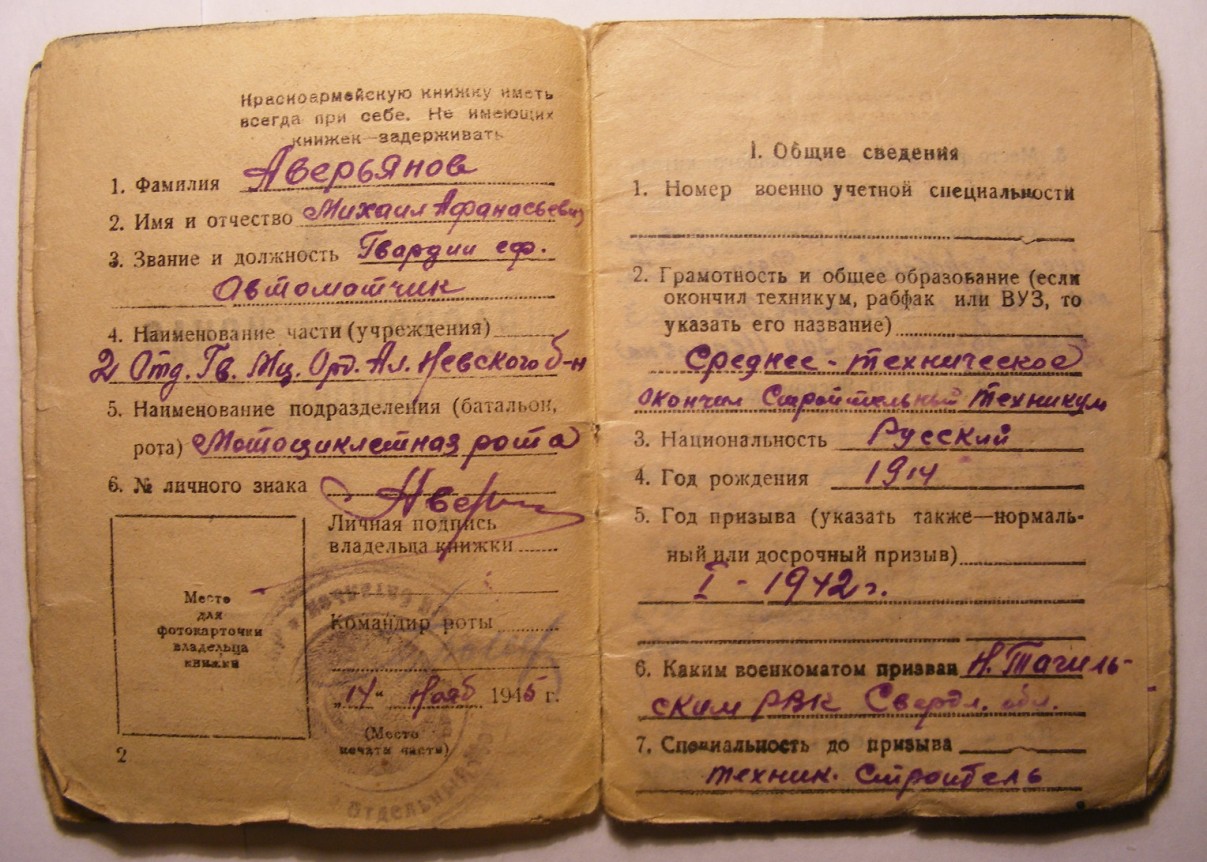 Красноармейскую книжку иметь
всегда при себе. Не имеющих
книжек—задерживать
1. Фамилия Аверьянов
2. Имя и отчество Михаил Афанасьевич
3. Звание и должность Гвардии еф.
Автоматчик
4. Наименование части (учреждения)
2 Отд. Гв. Мц. Орд. Ал. Невского б-н
5. Наименование подразделения (батальон,
рота) Мотоциклетная рота
6. № личного знака
Личная подпись
владельца книжки
Место
для
фотокарточки
владельца
книжки
Командир роты
„14“ Нояб 1945 г.
(Место
печати части)
2
ОТДЕЛЬНЫЙ
I. Общие сведения
1. Номер военно учетной специальности
2. Грамотность и общее образование (если
окончил техникум, рабфак или ВУЗ, то
указать его название)
Среднее - техническое
окончил Строительный техникум
3. Национальность Русский
4. Год рождения 1914
5. Год призыва (указать также—нормаль-
ный или досрочный призыв)
I - 1942 г.
6. Каким военкоматом призван Н. Тагиль-
ским РВК Свердл. обл.
7. Специальность до призыва
техник. Строитель